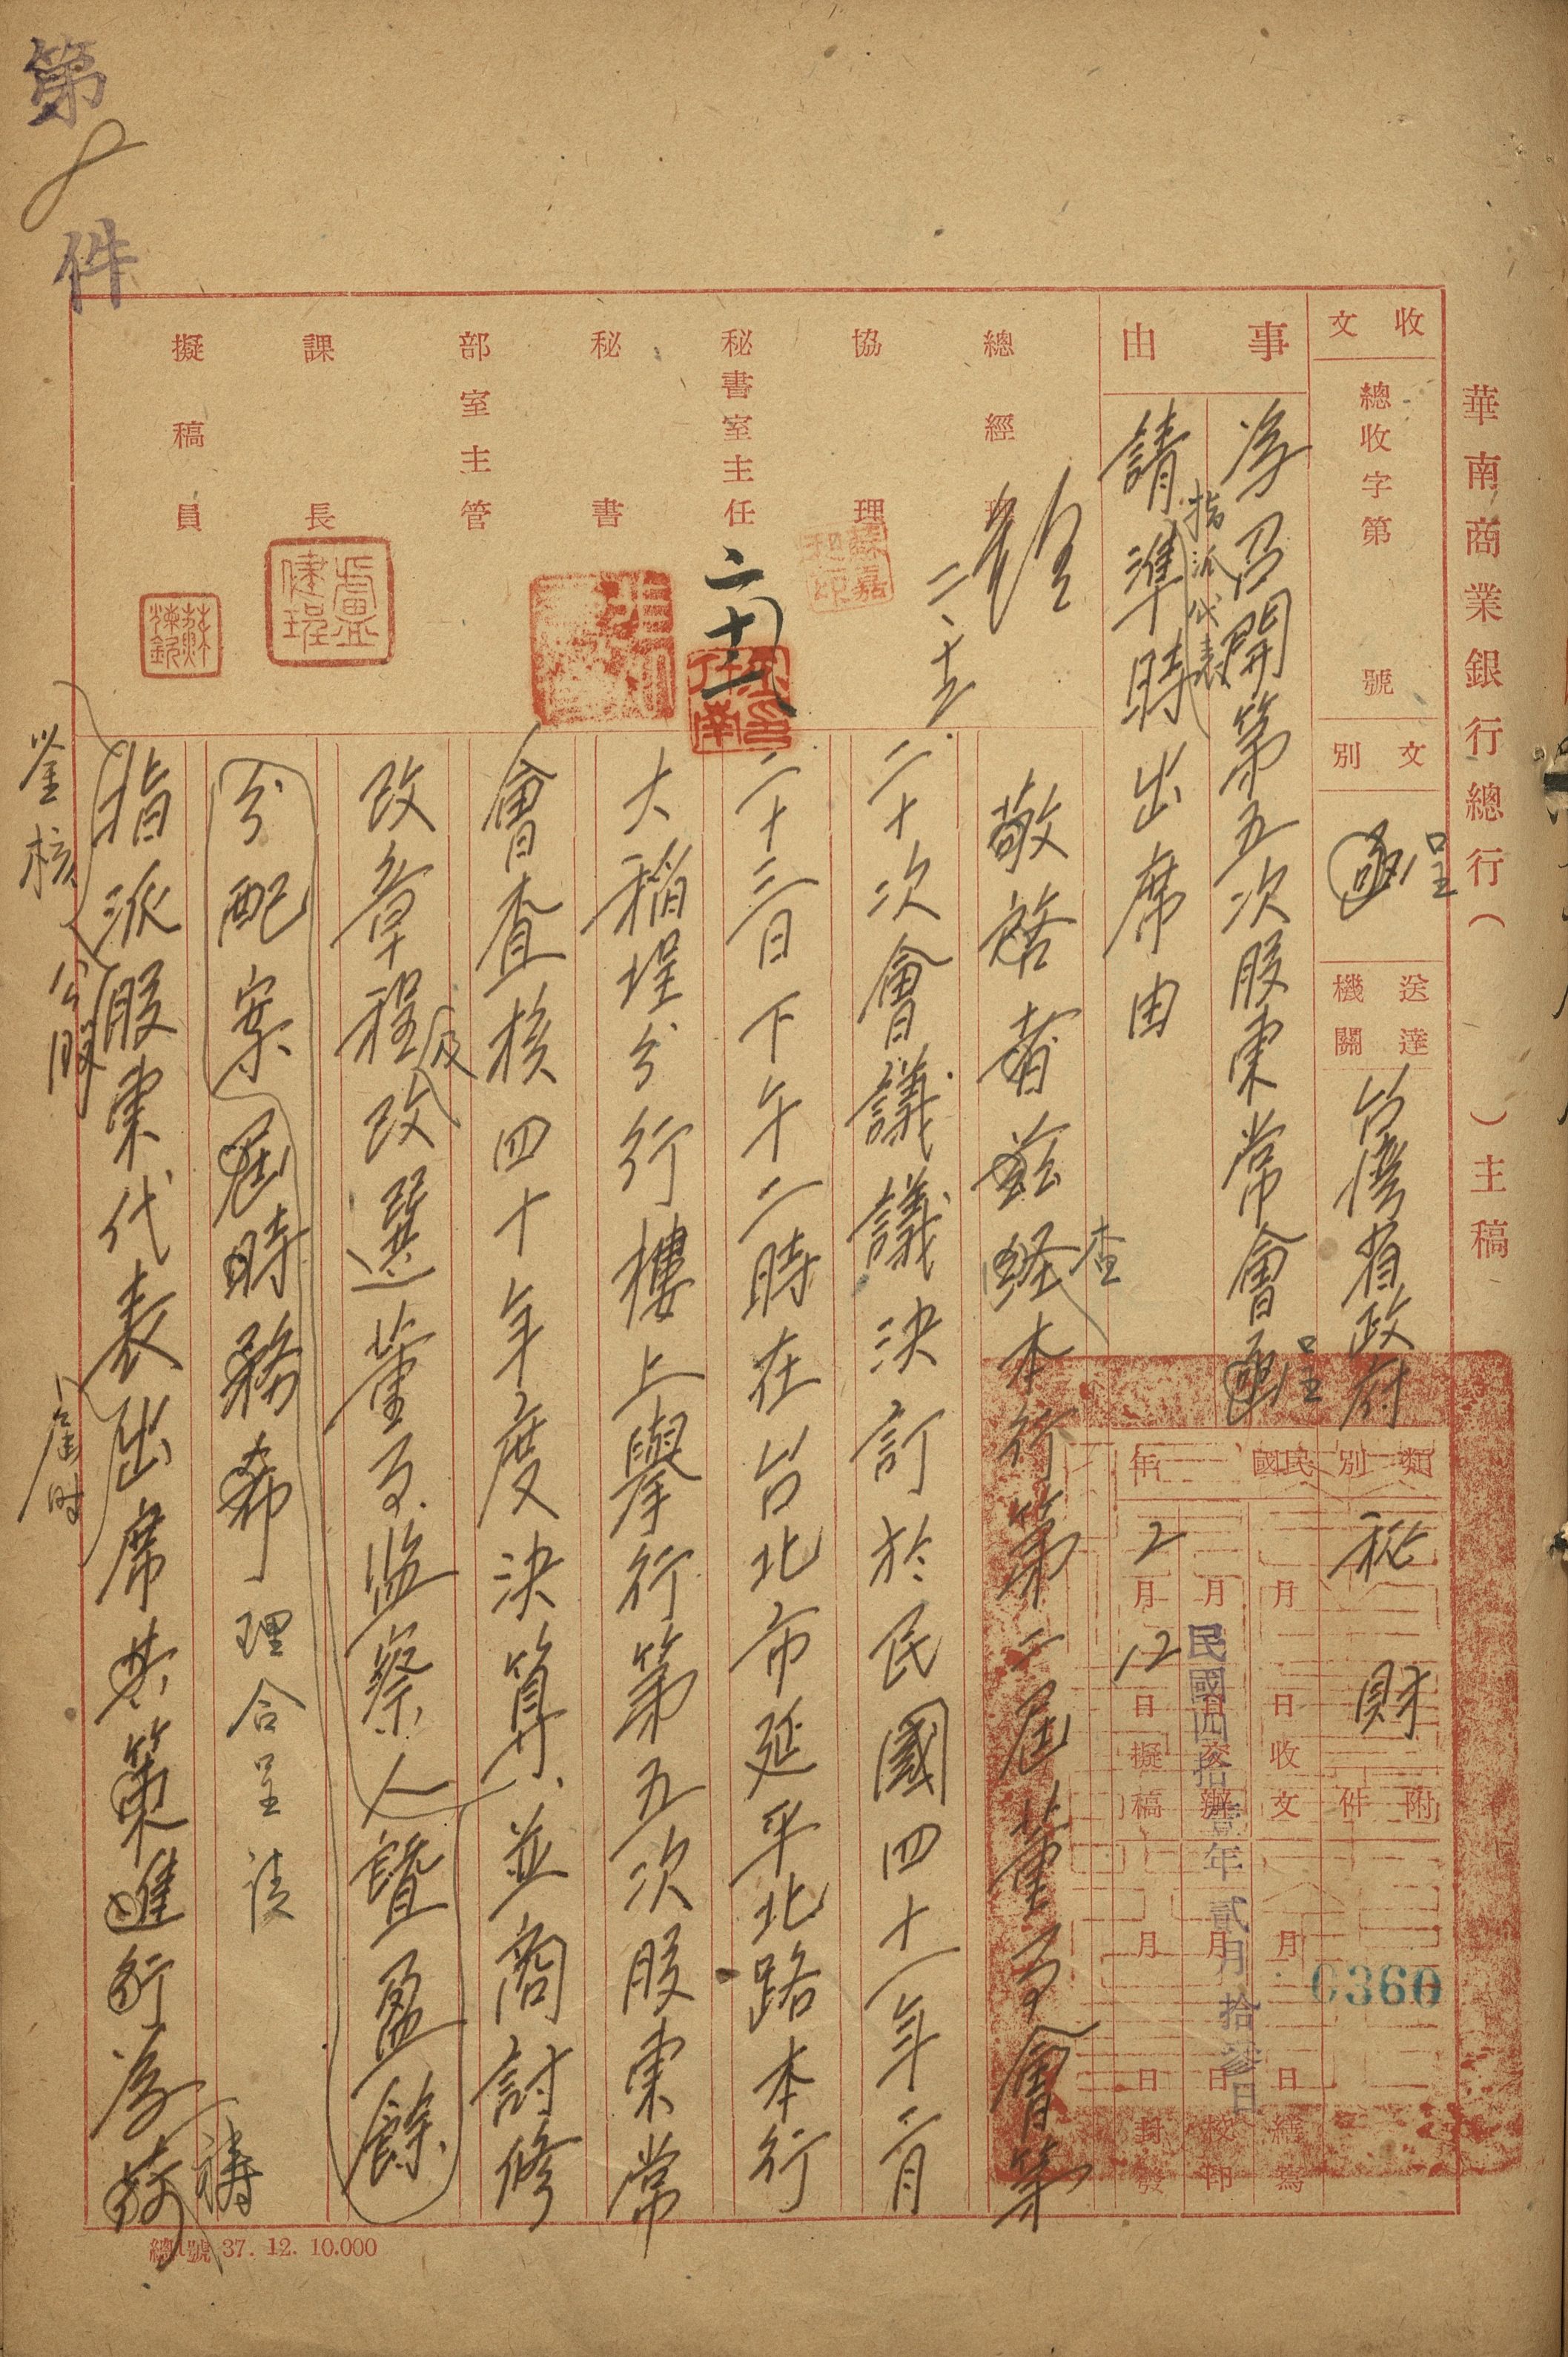 華南商業銀行總行（　　）主稿
收文
總收字第　　號
文別
函 呈
送達機關
台灣省政府
類別
秘 財
附件
0360
事由
為召開第五次股東常會函呈
指派代表
請準時出席由
民國　年
月　日收文
月　日交辦
2月12日擬稿
月　日繕寫
月　日校印
月　日封發
民國四拾壹年貳月拾參日
總經理
協理
秘書室主任
秘書
部室主管
課長
擬稿員
二、十三
二、十二
盧健珵
敬啓者茲經查本行第二屆董事會第
二十次會議議決訂於民國四十一年二月
二十三日下午二時在台北市延平北路本行
大稻埕分行樓上舉行第五次股東常
會查核四十年度決算、並商討修
改章程及改選董事、監察人暨盈餘
分配案屆時務希理合呈請
指派股東代表出席共策進行為荷禱
鑒核
公股
屆時
第8件
總1號 37. 12. 10.000